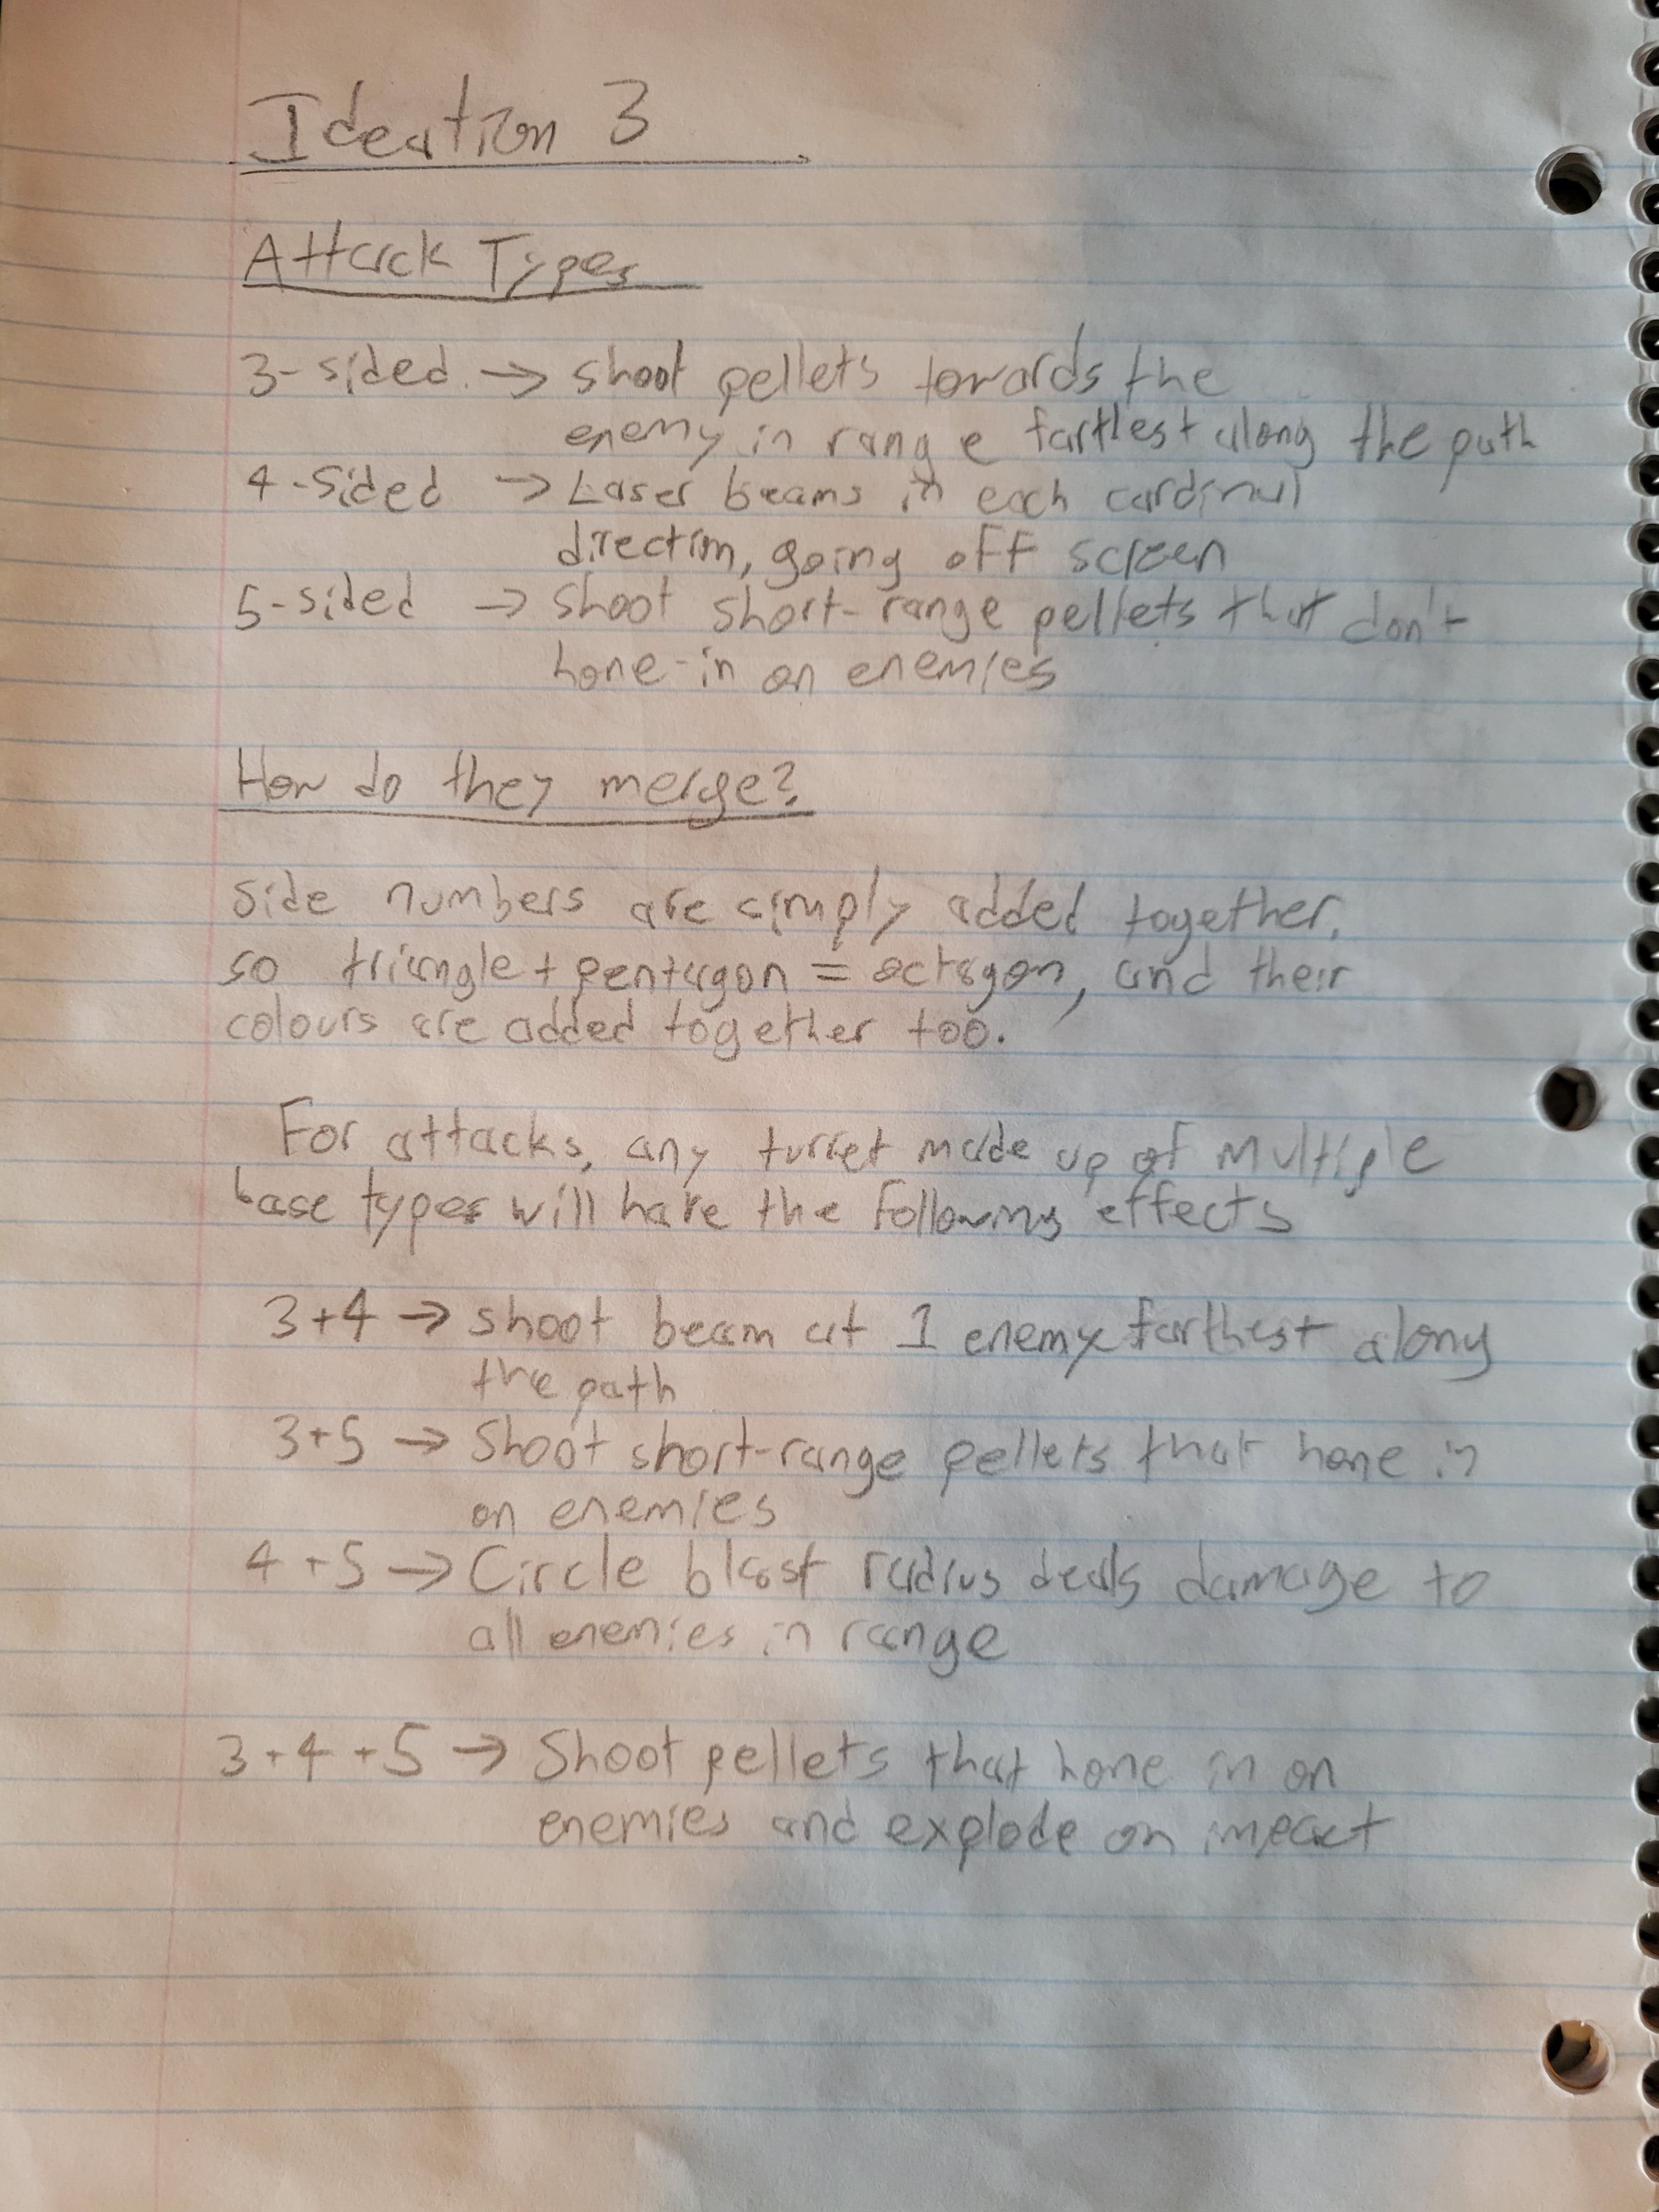 Ideation 3
Attack Types
3-sided → shoot pellets towards the
enemy in range farthest along the path
4-sided → Laser beams in each cardinal
direction, going off screen
5-sided → shoot short-range pellets that don't
hone-in on enemies
How do they merge?
side numbers are simply added together,
so triangle + pentagon = octagon, and their
colours are added together too.
For attacks, any turret made up of multiple
base types will have the following effects
3+4 → shoot beam at 1 enemy farthest along
the path
3+5 → Shoot short-range pellets that hone in
on enemies
4+5 → Circle blast radius deals damage to
all enemies in range
3+4+5 → Shoot pellets that hone in on
enemies and explode on impact